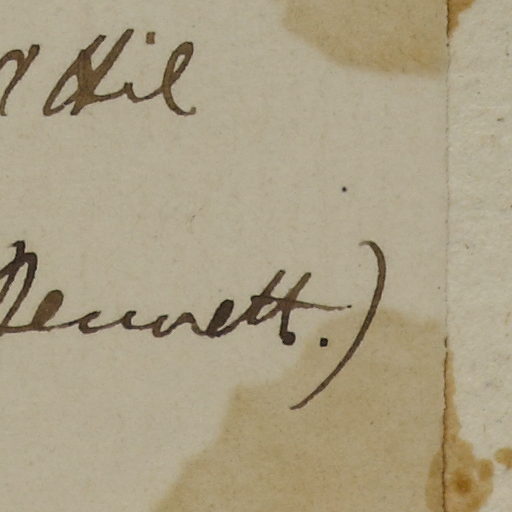 Hil
Bennett.)